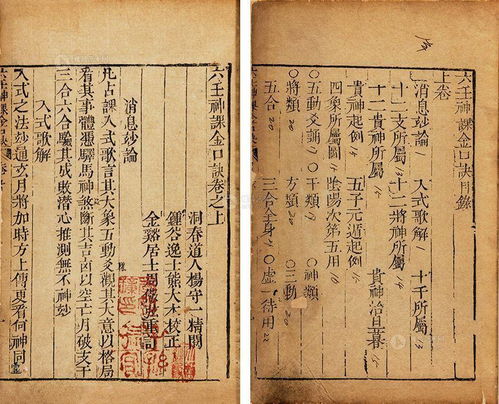 六壬神課金口訣目錄
上卷
消息妙論 1 入式歌解 1 十干所屬 13
十二支所屬 十二將神所屬
十二貴神所屬 15 貴神治旦暮
貴神起例 五子元遁起例
四象所屬圖 陰陽次第五用
○五動爻 ○干類 ○神類
○將類 ○方類 ○三動
五合 20 三合全身 ○虛一待用 22
六壬神課金口訣卷之上
洞春道人楊守一精閱
鍾谷逸士熊大木校正
金谿居士周儆弦重訂
消息妙論
凡占課入式歌言其大象五動爻觀其大意以格局
看其事體憑驛馬神煞斷其吉凶以空亡月破支干
三合六合驗其成敗潛心推測無不神妙
入式歌解
入式之法妙通玄月將加時方上傳更看何神同